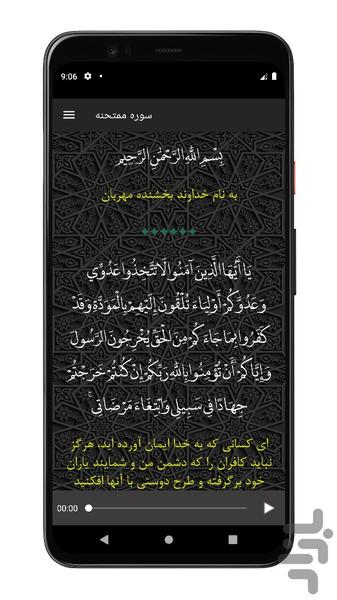 9:06
سوره ممتحنه
بِسْمِ اللَّهِ الرَّحْمَٰنِ الرَّحِيمِ
به نام خداوند بخشنده مهربان
يَا أَيُّهَا الَّذِينَ آمَنُوا لَا تَتَّخِذُوا عَدُوِّي
وَعَدُوَّكُمْ أَوْلِيَاءَ تُلْقُونَ إِلَيْهِمْ بِالْمَوَدَّةِ وَقَدْ
كَفَرُوا بِمَا جَاءَكُمْ مِنَ الْحَقِّ يُخْرِجُونَ الرَّسُولَ
وَإِيَّاكُمْ أَنْ تُؤْمِنُوا بِاللَّهِ رَبِّكُمْ إِنْ كُنْتُمْ خَرَجْتُمْ
جِهَادًا فِي سَبِيلِي وَابْتِغَاءَ مَرْضَاتِي ۚ
ای کسانی که به خدا ایمان آورده اید، هرگز
نباید کافران را که دشمن من و شمایند یاران
خود برگرفته و طرح دوستی با آنها افکنید
00:00
بازار